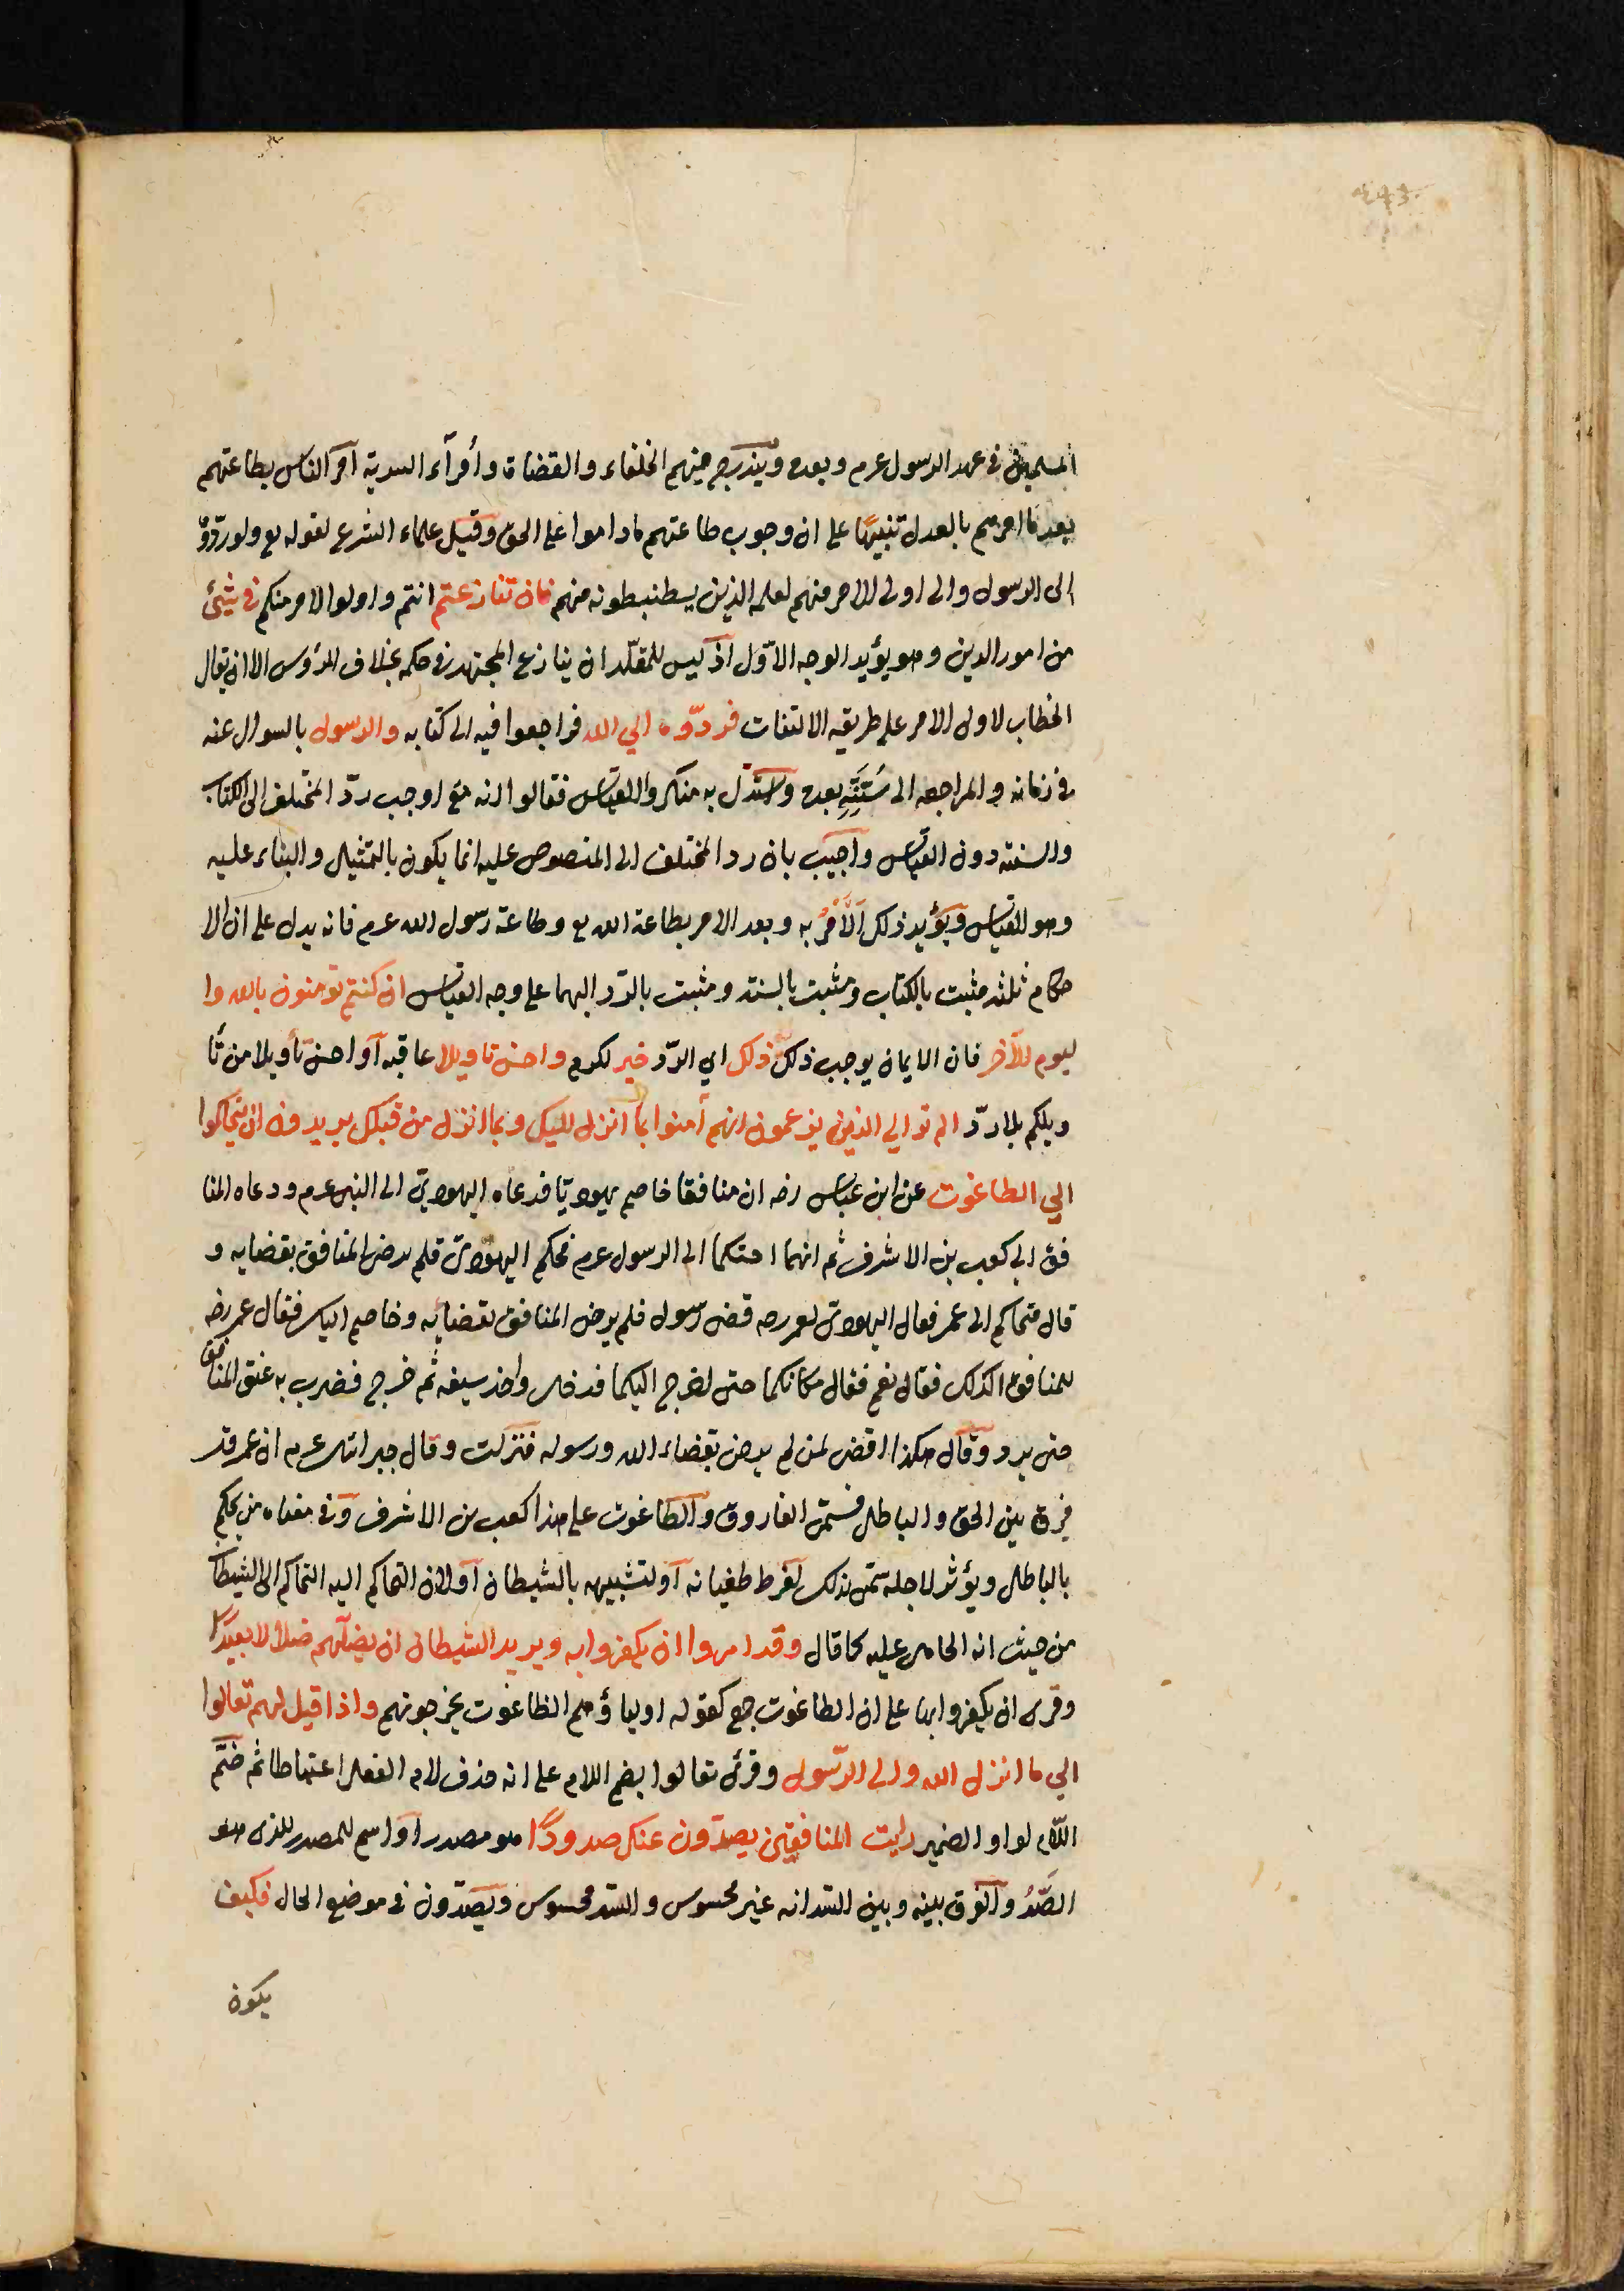 المسلمين في عهد الرسول عرم وبعده ويندرج فيهم الخلفاء والقضاة وأمرآء السرية امر الناس بطاعتهم
بعد ما امرهم بالعدل تنبيهًا على ان وجوب طاعتهم ماداموا على الحق وقيل علماء الشرع لقوله تع ولو ردّوهُ
الى الرسول والى اولى الامر منهم لعلمه الذين يسطنبطونه منهم فان تنازعتم انتم واولوا الامر منكم في شيئ
من امور الدين وهو يؤيد الوجه الاوّل اذ ليس للمقلّد ان ينازع المجتهد في حكمه بخلاف المرؤس الا ان يقال
الخطاب لاولى الامر على طريقه الالتفات فردّوه الي الله فراجعوا فيه الى كتابه والرسول بالسوال عنه
في زمانه والمراجعه الى سُنَّتِهِ بعده واستدل به منكروا القياس فقالوا انه تع اوجب ردّ المختلف الى الكتاب
والسنته دون القياس واجيب بان رد المختلف الى المنصوص عليه انما يكون بالتمثيل والبناء عليه
وهو القياس ويؤيد ذلك الأَمْرُ به وبعد الامر بطاعة الله تع وطاعة رسول الله عرم فانه يدل على ان الا
حكام ثلثه مثبت بالكتاب ومثبت بالسنته ومثبت بالرّد اليهما على وجه القياس ان كنتم تؤمنون بالله وا
ليوم الآخر فان الايمان يوجب ذلك ذلك اي الرّد خير لكم واحسن تاويلا عاقبه آو احسن تأويلا من تأ
ويلكم بلا ردّ الم تر الي الذين يزعمون انهم آمنوا بما انزل اليك وبما انزل من قبلك يريدون ان يتحاكموا
الي الطاغوت عن ابن عباس رضه ان منافقا خاصم يهوديّا فدعاه اليهوديّ الى النبى عرم ودعاه المنا
فق الى كعب بن الاشرف ثم انهما احتكما الى الرسول عرم فحكم اليهوديّ فلم يرض المنافق بقضايه و
قال نتحاكم الى عمر فقال اليهودىّ لعمر رضه قضى رسول فلم يرض المنافق بقضائه وخاصم اليك فقال عمر رضه
للمنافق اكذلك فقال نعم فقال مكانكما حتى اخرج اليكما فدخل واخذ سيفه ثم خرج فضرب به عنق المنافق
حتى برد وقال هكذا اقضى لمن لم يرض بقضاء الله ورسوله فنزلت وقال جبرائل عرم ان عمر قد
فرق بين الحق والباطل فسمّى الفاروق والطاغوت على هذا كعب بن الاشرف وفي معناه من يحكم
بالباطل ويؤثر لاجله سمّى بذلك لفرط طغيانه آو لتشبيهه بالشيطان آو لان التحاكم اليه التحاكم الى الشيطا
من حيث انه الحامل عليه كما قال وقد امروا ان يكفروا به ويريد الشيطان ان يضلّهم ضلالا بعيدًا
وقرى ان يكفروا بها على ان الطاغوت جمع كقوله اولياؤهم الطاغوت يخرجونهم واذا قيل لهم تعالوا
الي ما انزل الله والى الرّسول وقرئ تعالوا بضم اللام على انه حذف لام الفعل اعتباطا ثم ضَمّ
اللّام لواو الضمير رايت المنافقين يصدّون عنك صدودًا هو مصدر او اسم للمصدر الذى هو
الصَّدُ والفرق بينه وبين السّد انه غير محسوس والسّد محسوس ويصدّون في موضع الحال فكيف
يكون